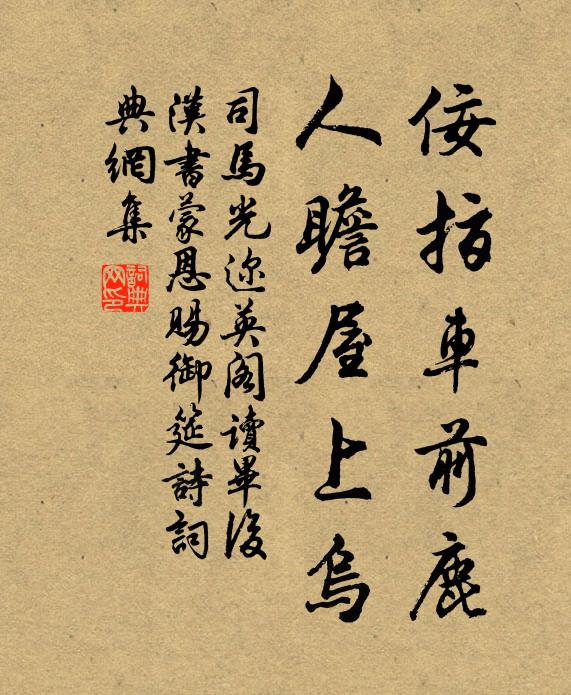 佞指車前鹿
人瞻屋上烏
司馬光迩英阁讀畢後
漢書蒙恩賜御筵詩詞
典網集
詞典网印